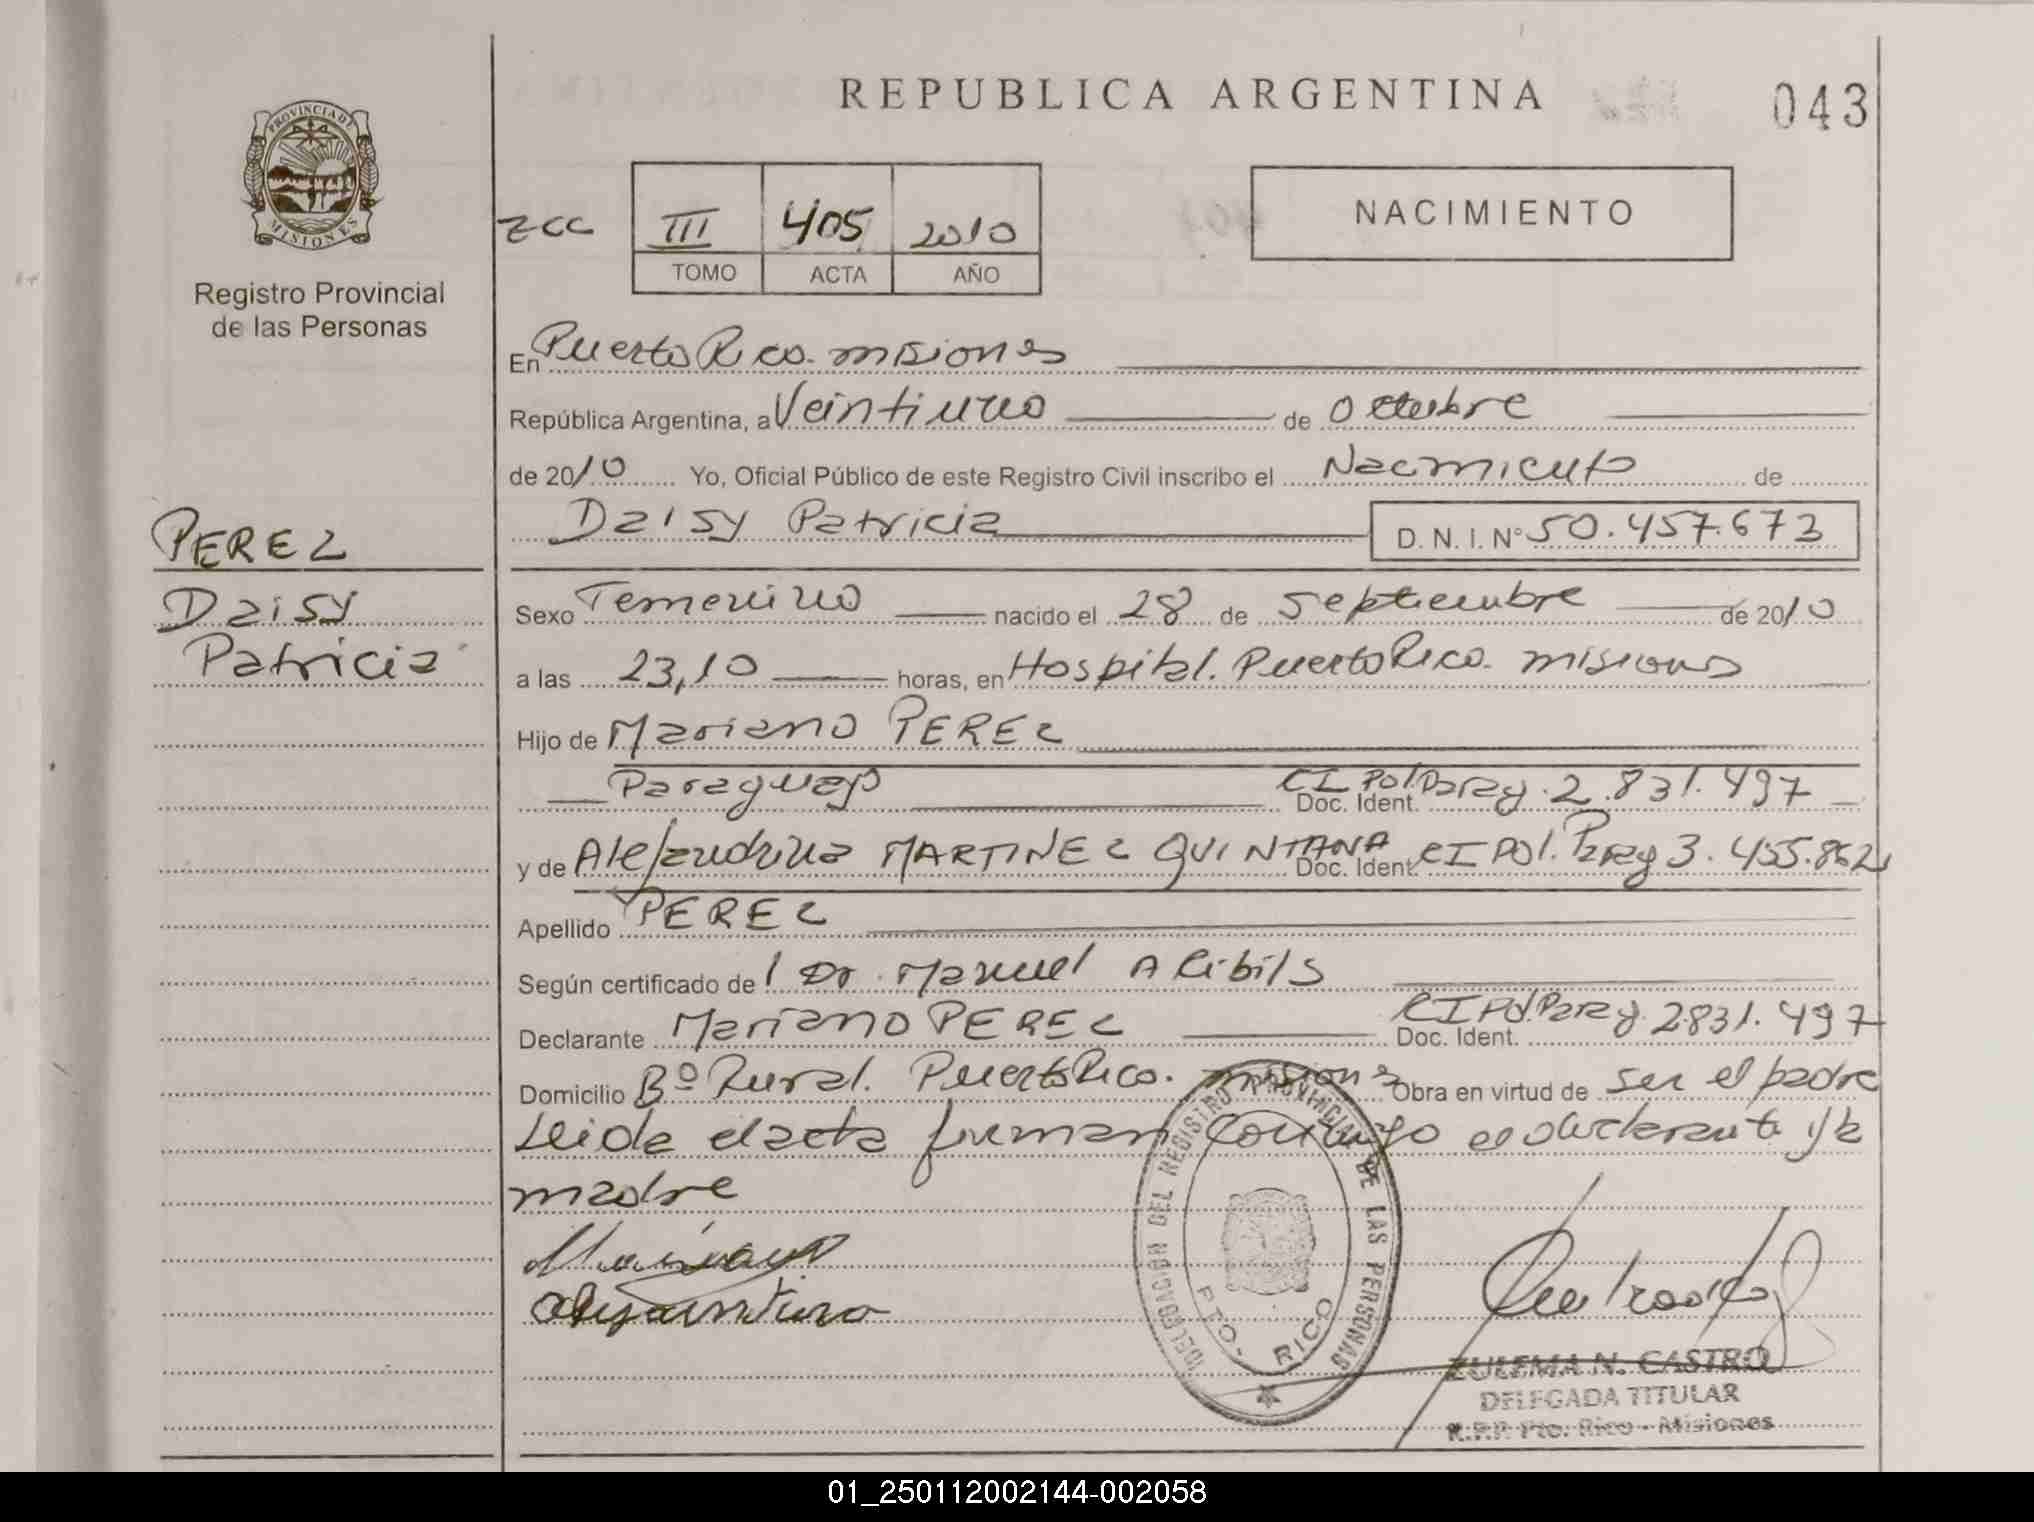 REPUBLICA ARGENTINA
043
PROVINCIA DE
MISIONES
Registro Provincial
de las Personas
zcc III 405 2010
TOMO ACTA AÑO
NACIMIENTO
En Puerto Rico. misiones
República Argentina, a Veintiuno de Octubre
de 2010 Yo, Oficial Público de este Registro Civil inscribo el Nacimiento de
Daisy Patricia D. N. I. Nº 50.457.673
PEREZ
Daisy
Patricia
Sexo Femenino nacido el 28 de Septiembre de 2010
a las 23,10 horas, en Hospital. Puerto Rico. misiones
Hijo de Mariano PEREZ
Paraguayo Doc. Ident. CI Pol Parag. 2.831.497
y de Alejandrina MARTINEZ QUINTANA Doc. Ident. CI Pol. Parag 3.455.862
Apellido PEREZ
Según certificado del Dr. Manuel Alibils
Declarante Mariano PEREZ Doc. Ident. CI Pol. Parag. 2.831.497
Domicilio Bº Rural. Puerto Rico. misiones Obra en virtud de ser el padre
Leida el acta firman conmigo el declarante y la
madre
DELEGACION DEL REGISTRO PROVINCIAL DE LAS PERSONAS
PTO. RICO
ZULEMA N. CASTRO
DELEGADA TITULAR
R.P.P. Pto. Rico - Misiones
01_250112002144-002058